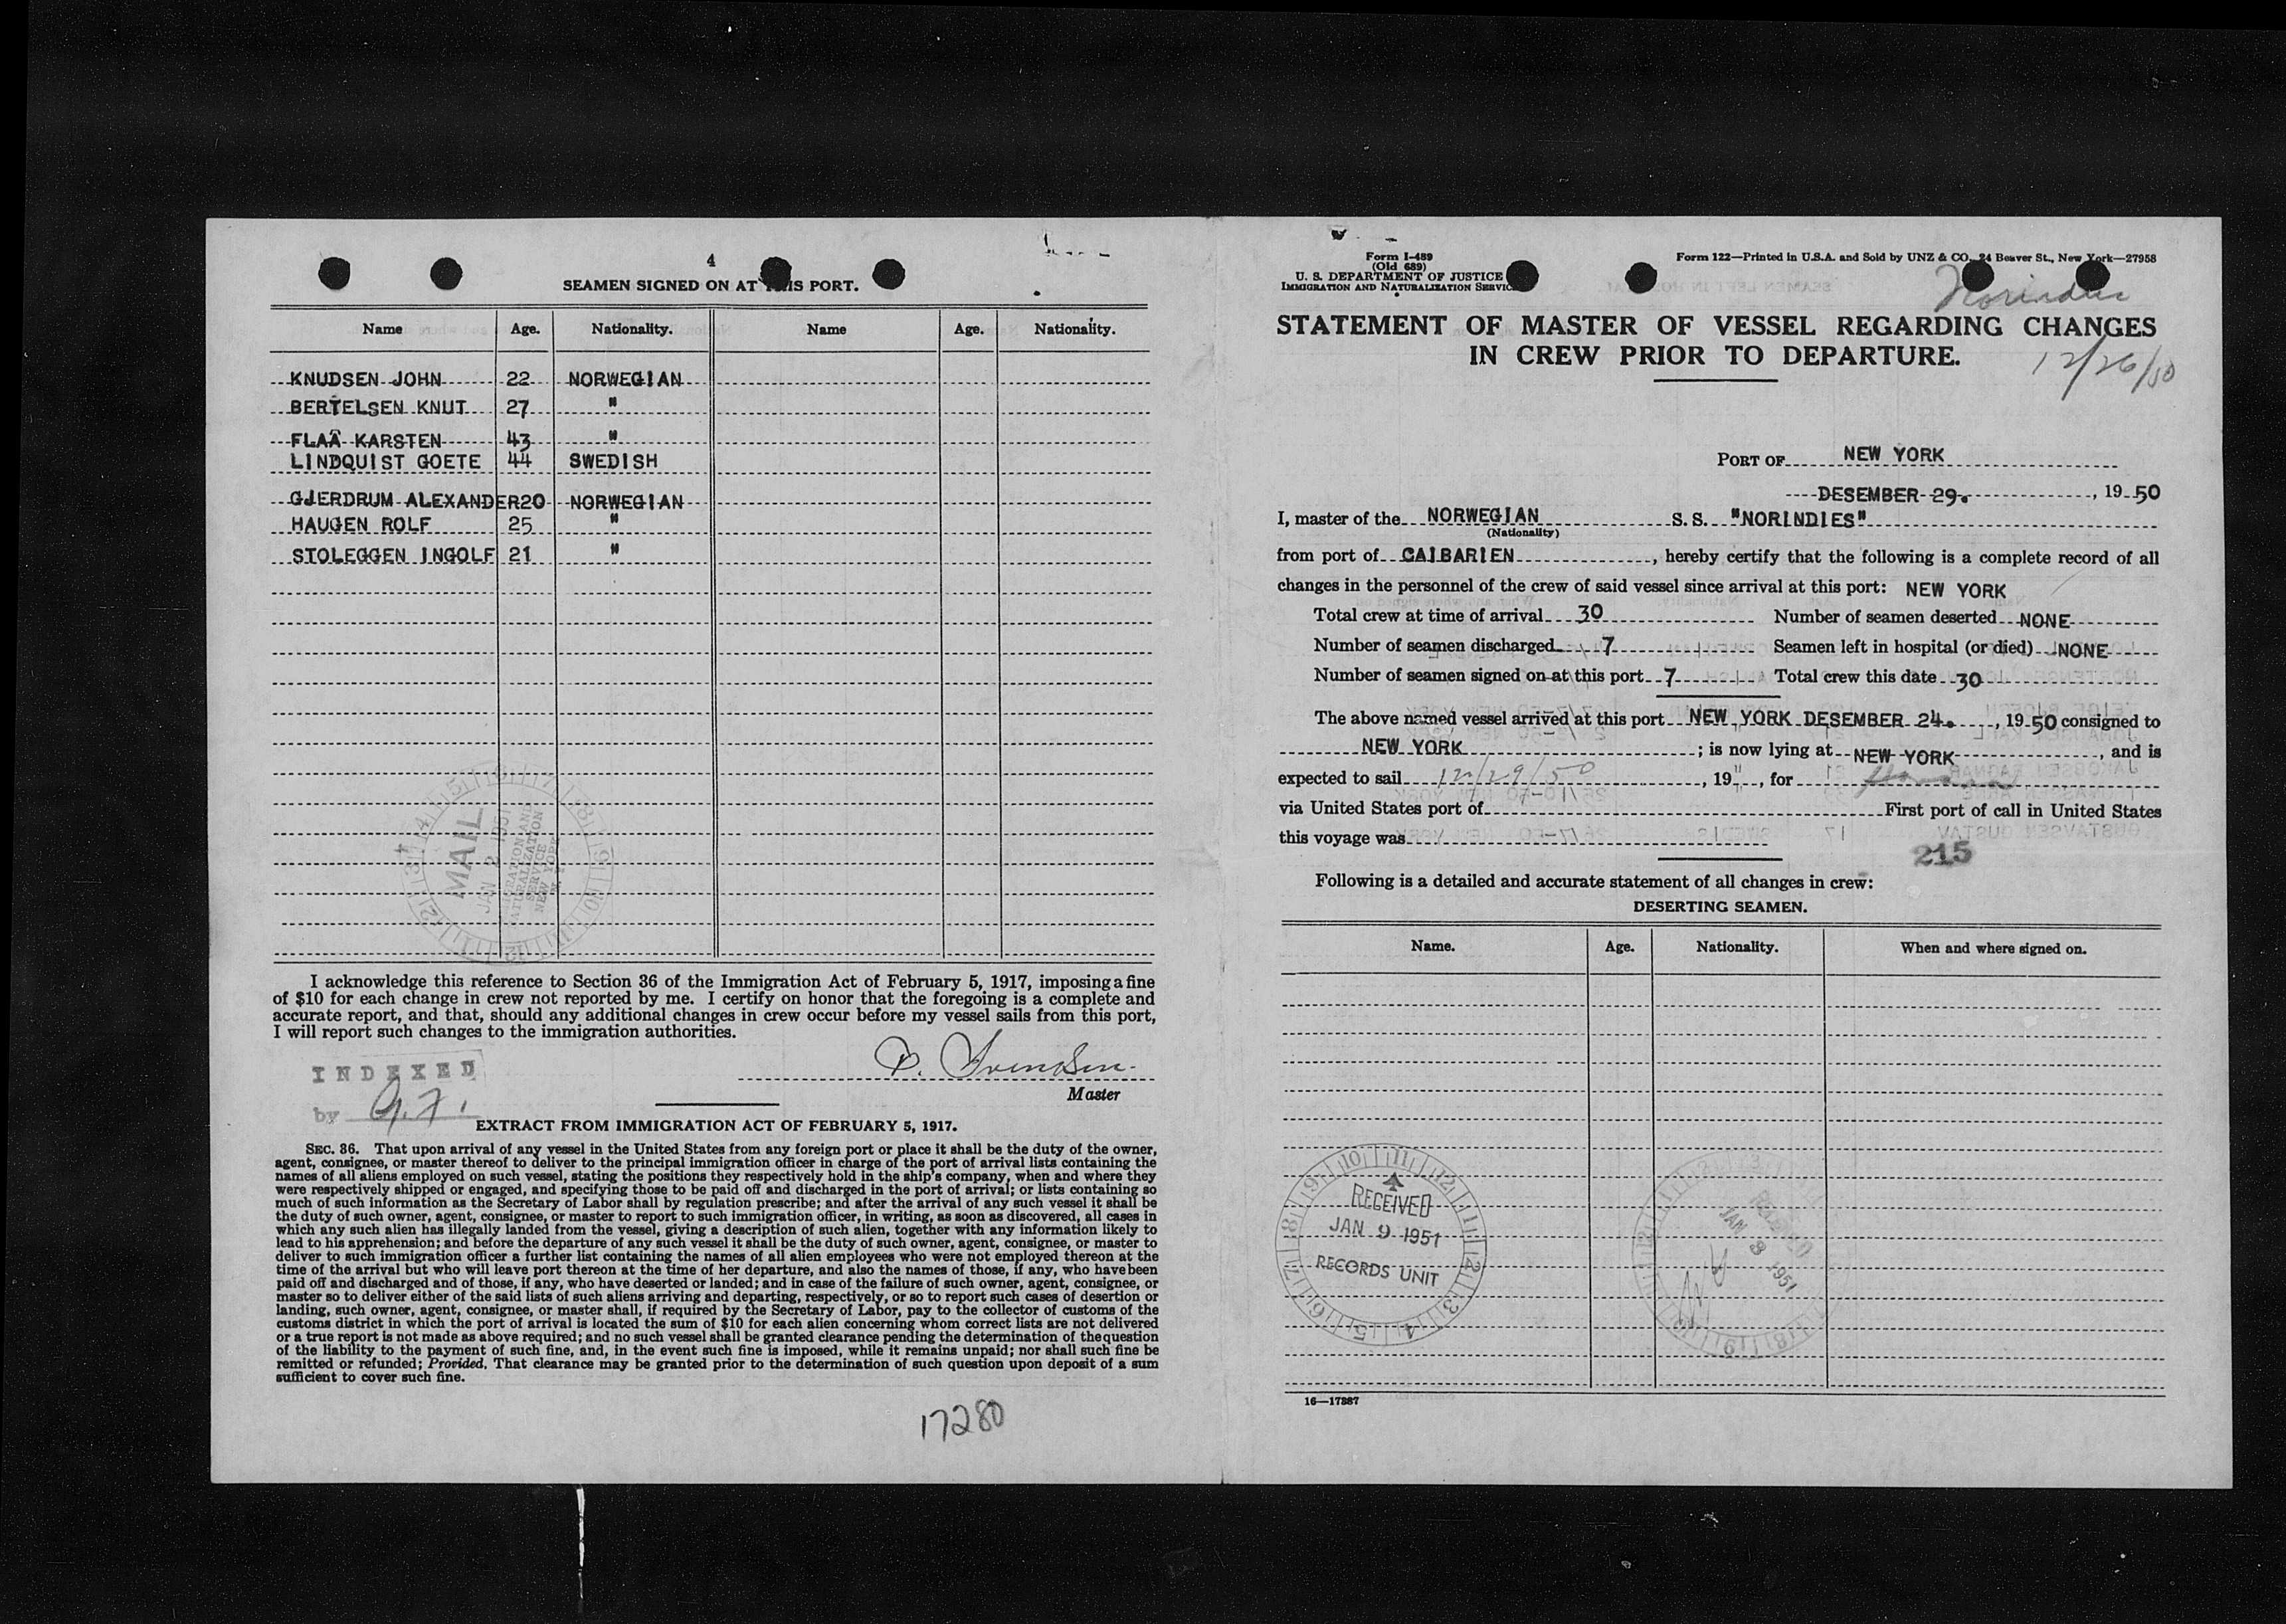 4
SEAMEN SIGNED ON AT THIS PORT.
Name Age. Nationality. Name Age. Nationality.
KNUDSEN JOHN 22 NORWEGIAN
BERTELSEN KNUT 27 "
FLAA KARSTEN 43 "
LINDQUIST GOETE 44 SWEDISH
GJERDRUM ALEXANDER 20 NORWEGIAN
HAUGEN ROLF 25 "
STOLEGGEN INGOLF 21 "
MAIL
JAN 1951
IMMIGRATION AND
NATURALIZATION
SERVICE
NEW YORK
I acknowledge this reference to Section 36 of the Immigration Act of February 5, 1917, imposing a fine
of $10 for each change in crew not reported by me. I certify on honor that the foregoing is a complete and
accurate report, and that, should any additional changes in crew occur before my vessel sails from this port,
I will report such changes to the immigration authorities.
INDEXED
by
Master
EXTRACT FROM IMMIGRATION ACT OF FEBRUARY 5, 1917.
SEC. 36. That upon arrival of any vessel in the United States from any foreign port or place it shall be the duty of the owner,
agent, consignee, or master thereof to deliver to the principal immigration officer in charge of the port of arrival lists containing the
names of all aliens employed on such vessel, stating the positions they respectively hold in the ship's company, when and where they
were respectively shipped or engaged, and specifying those to be paid off and discharged in the port of arrival; or lists containing so
much of such information as the Secretary of Labor shall by regulation prescribe; and after the arrival of any such vessel it shall be
the duty of such owner, agent, consignee, or master to report to such immigration officer, in writing, as soon as discovered, all cases in
which any such alien has illegally landed from the vessel, giving a description of such alien, together with any information likely to
lead to his apprehension; and before the departure of any such vessel it shall be the duty of such owner, agent, consignee, or master to
deliver to such immigration officer a further list containing the names of all alien employees who were not employed thereon at the
time of the arrival but who will leave port thereon at the time of her departure, and also the names of those, if any, who have been
paid off and discharged and of those, if any, who have deserted or landed; and in case of the failure of such owner, agent, consignee, or
master so to deliver either of the said lists of such aliens arriving and departing, respectively, or so to report such cases of desertion or
landing, such owner, agent, consignee, or master shall, if required by the Secretary of Labor, pay to the collector of customs of the
customs district in which the port of arrival is located the sum of $10 for each alien concerning whom correct lists are not delivered
or a true report is not made as above required; and no such vessel shall be granted clearance pending the determination of the question
of the liability to the payment of such fine, and, in the event such fine is imposed, while it remains unpaid; nor shall such fine be
remitted or refunded; Provided, That clearance may be granted prior to the determination of such question upon deposit of a sum
sufficient to cover such fine.
17280
Form I-489
(Old 689)
U. S. DEPARTMENT OF JUSTICE
IMMIGRATION AND NATURALIZATION SERVICE
Form 122—Printed in U.S.A. and Sold by UNZ & CO., 24 Beaver St., New York—27958
Norindies
STATEMENT OF MASTER OF VESSEL REGARDING CHANGES
IN CREW PRIOR TO DEPARTURE.
12/26/50
PORT OF NEW YORK
DESEMBER 29. , 19 50
I, master of the NORWEGIAN S. S. "NORINDIES"
(Nationality)
from port of CAIBARIEN , hereby certify that the following is a complete record of all
changes in the personnel of the crew of said vessel since arrival at this port: NEW YORK
Total crew at time of arrival 30 Number of seamen deserted NONE
Number of seamen discharged 7 Seamen left in hospital (or died) NONE
Number of seamen signed on at this port 7 Total crew this date 30
The above named vessel arrived at this port NEW YORK DESEMBER 24. , 19 50 consigned to
NEW YORK ; is now lying at NEW YORK , and is
expected to sail 12/29/50 , 19 " , for
via United States port of First port of call in United States
this voyage was
215
Following is a detailed and accurate statement of all changes in crew:
DESERTING SEAMEN.
Name. Age. Nationality. When and where signed on.
RECEIVED
JAN 9 1951
RECORDS UNIT
JAN 3 1951
16—17387